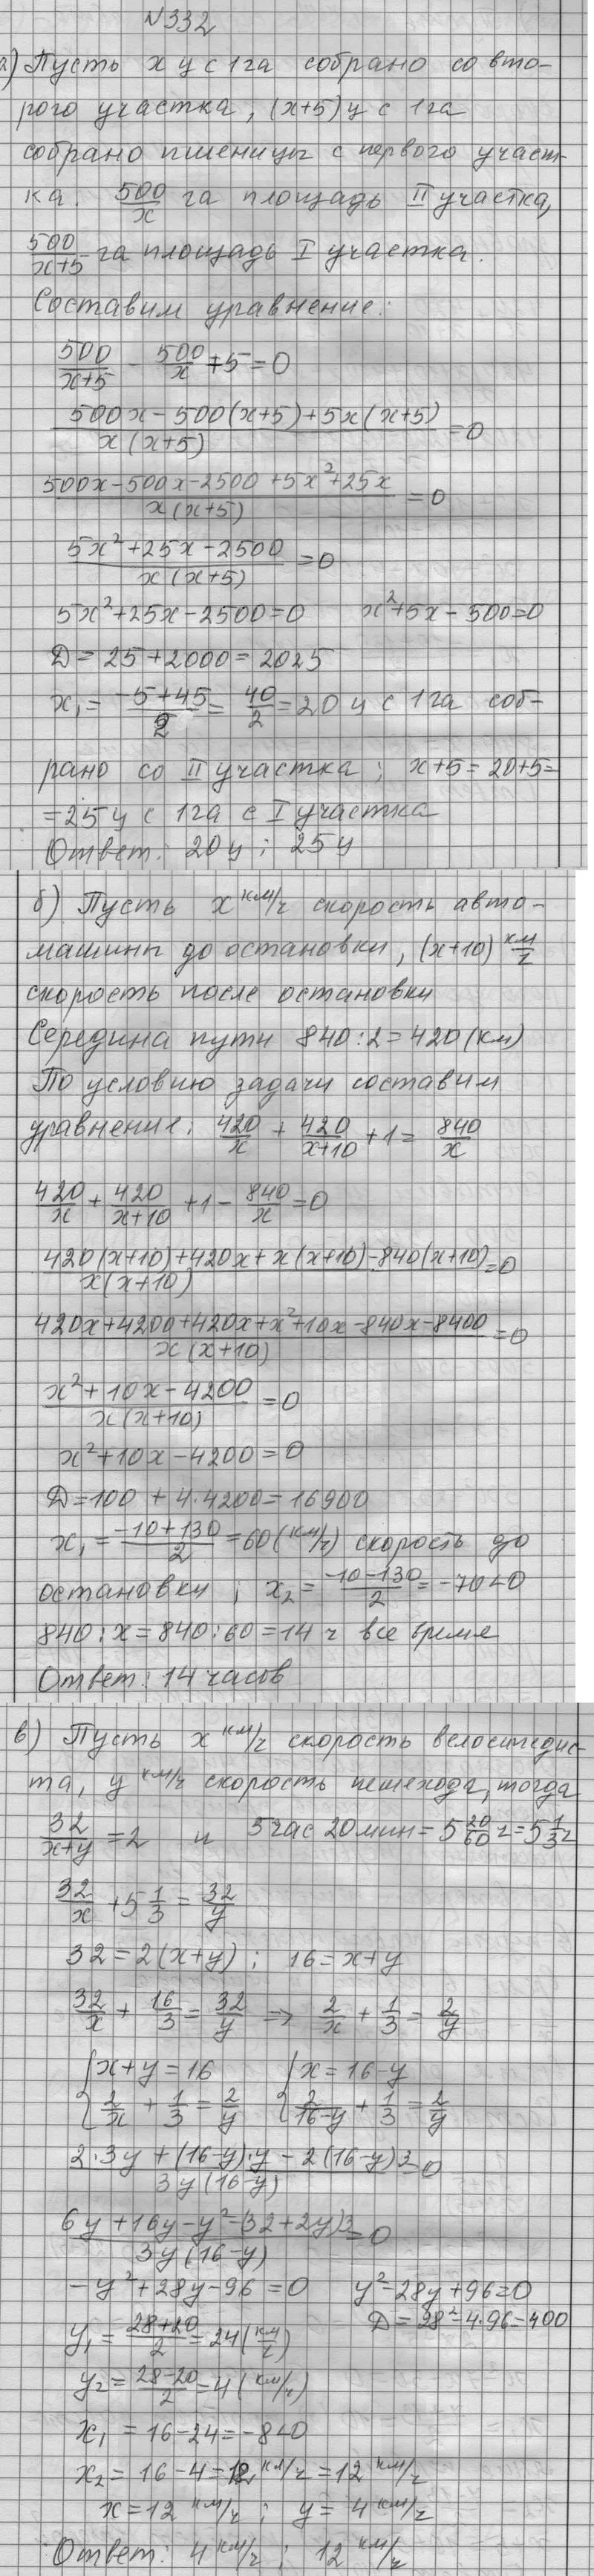 N332
а) Пусть x ц с 1га собрано со вто-
рого участка, (x+5) ц с 1га
собрано пшеницы с первого участ-
ка. 500/x га площадь II участка,
500/(x+5) га площадь I участка.
Составим уравнение:
500/(x+5) - 500/x + 5 = 0
(500x - 500(x+5) + 5x(x+5))/(x(x+5)) = 0
(500x - 500x - 2500 + 5x² + 25x)/(x(x+5)) = 0
(5x² + 25x - 2500)/(x(x+5)) = 0
5x² + 25x - 2500 = 0 x² + 5x - 500 = 0
Д = 25 + 2000 = 2025
x₁ = (-5+45)/2 = 40/2 = 20 ц с 1га соб-
рано со II участка; x+5 = 20+5 =
= 25 ц с 1га с I участка
Ответ: 20 ц; 25 ц
б) Пусть x км/ч скорость авто-
машины до остановки, (x+10) км/ч
скорость после остановки
Середина пути 840:2 = 420 (км)
По условию задачи составим
уравнение: 420/x + 420/(x+10) + 1 = 840/x
420/x + 420/(x+10) + 1 - 840/x = 0
(420(x+10) + 420x + x(x+10) - 840(x+10))/(x(x+10)) = 0
(420x + 4200 + 420x + x² + 10x - 840x - 8400)/(x(x+10)) = 0
(x² + 10x - 4200)/(x(x+10)) = 0
x² + 10x - 4200 = 0
Д = 100 + 4·4200 = 16900
x₁ = (-10+130)/2 = 60 (км/ч) скорость до
остановки; x₂ = (-10-130)/2 = -70<0
840:x = 840:60 = 14 ч все время
Ответ: 14 часов
в) Пусть x км/ч скорость велосипедис-
та, y км/ч скорость пешехода, тогда
32/(x+y) = 2 и 5час 20мин = 5 20/60 ч = 5 1/3 ч
32/x + 5 1/3 = 32/y
32 = 2(x+y); 16 = x+y
32/x + 16/3 = 32/y ⇒ 2/x + 1/3 = 2/y
{x+y = 16 {x = 16-y
{2/x + 1/3 = 2/y {2/(16-y) + 1/3 = 2/y
(2·3y + (16-y)·y - 2(16-y)3)/(3y(16-y)) = 0
(6y + 16y - y² - (32+2y)3)/(3y(16-y)) = 0
-y² + 28y - 96 = 0 y² - 28y + 96 = 0
Д = 28² - 4·96 = 400
y₁ = (28+20)/2 = 24 (км/ч)
y₂ = (28-20)/2 = 4 (км/ч)
x₁ = 16-24 = -8<0
x₂ = 16-4 = 12 км/ч = 12 км/ч
x = 12 км/ч; y = 4 км/ч
Ответ: 4 км/ч; 12 км/ч